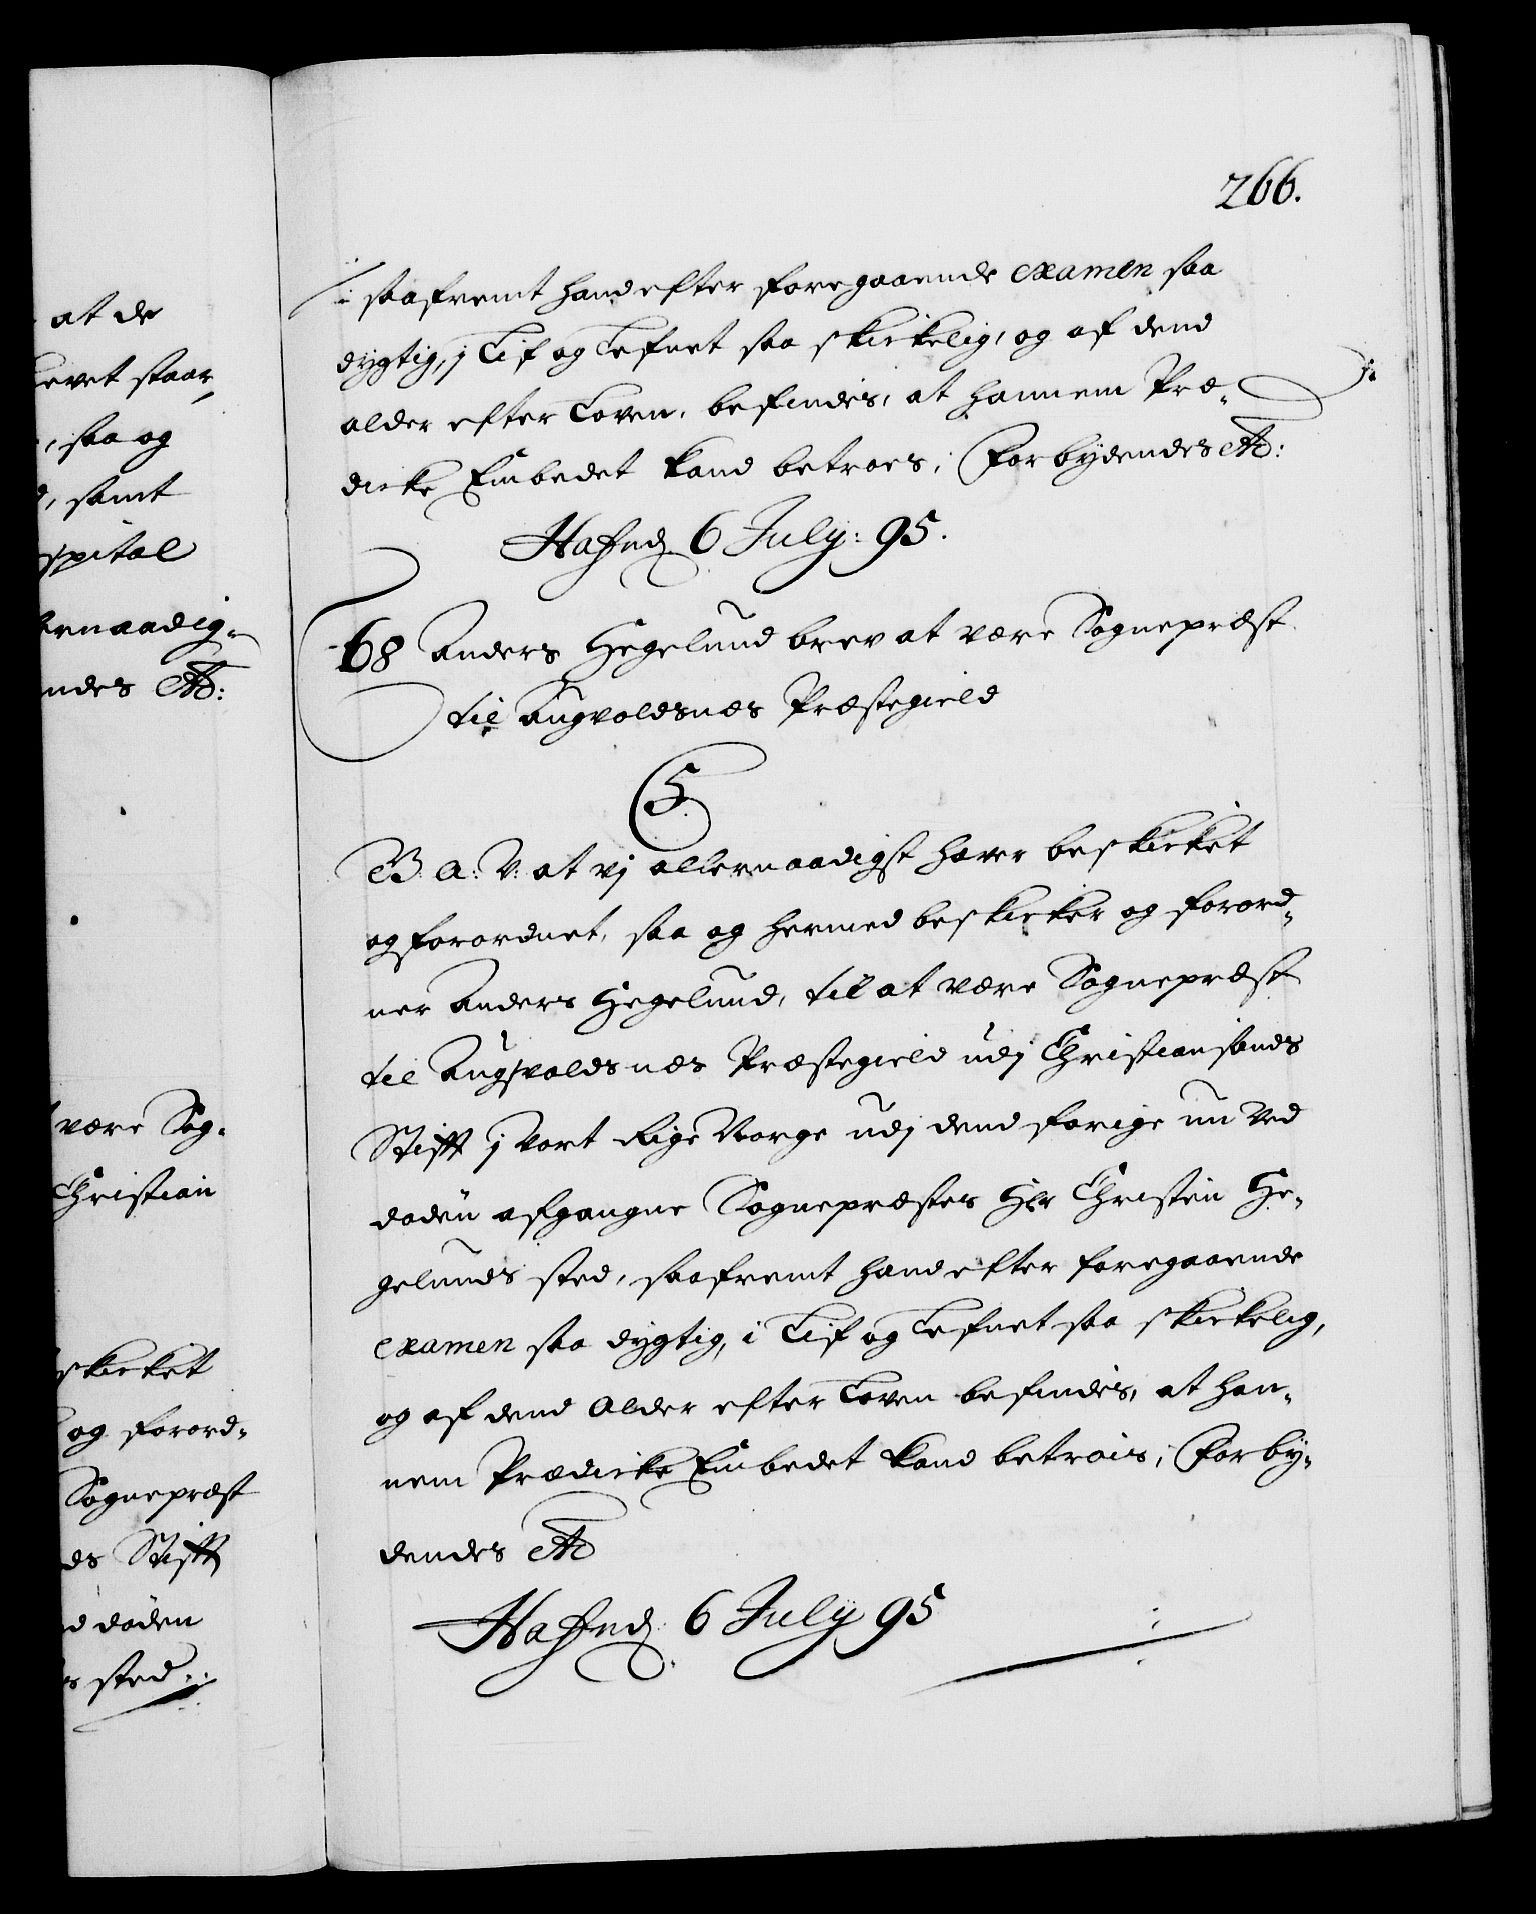 266.
/: saafremt hand efter foregaaende examen saa
dygtig, j Lif og Lefnet saa skickelig, og af dend
alder efter Loven, befindes, at hannem Præ- :/
dicke Embedet kand betroes; Forbydendes etc:
Hafnd 6 July: 95.
68 Anders Hegelund brev at være Sognepræst
til Augvoldsnæs Præstegield
C5.
G. a: V: at vj allernaadigst haver beskicket
og forordnet, saa og hermed beskicker og forord-
ner Anders Hegelund, til at være Sognepræst
til Augsvoldsnæs Præstegield udj Christiansands
Stift j vort Rige Norge udj dend forige nu ved
døden afgangne Sognepræstes Hr Christen He-
gelunds sted, saafremt hand efter foregaaende
examen saa dygtig, i Lif og Lefnet saa skickelig,
og af dend Alder efter Loven befindes, at han-
nem Prædicke Embedet kand betrois; Forby-
dendes etc
Hafnd. 6 July 95
at de
staar,
, saa og
, samt
spital
ernaadig-
ndes etc:
være Sog-
Christian
skicket
og forord-
Sognepræst
ds Stift
d døden
s sted :/: